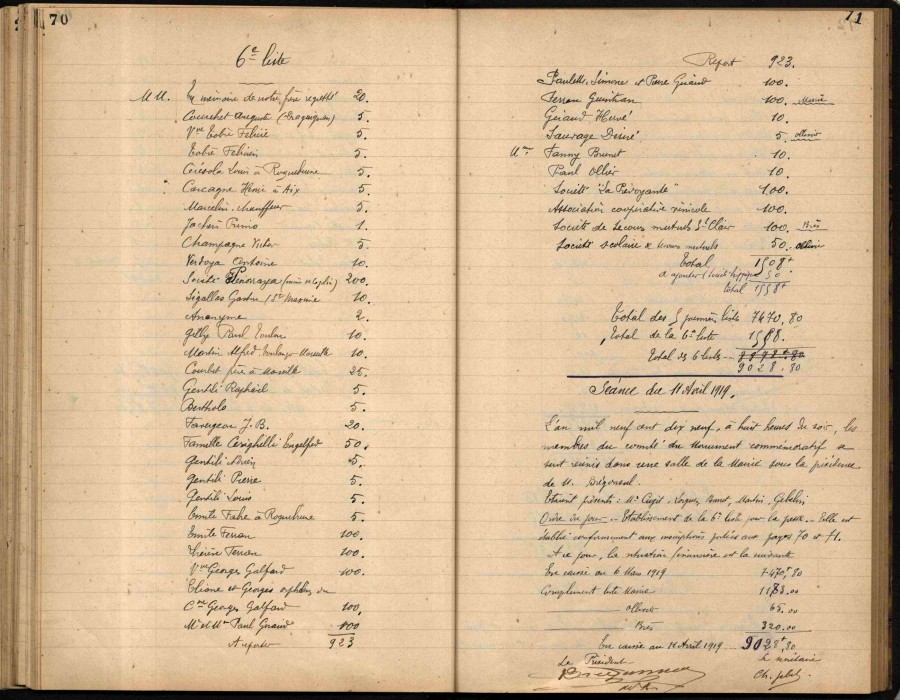 70
6e liste
MM. En mémoire de notre frère regretté 20.
Courchet Auguste (Draguignan) 5.
Vve Eobié Félicie 5.
Eobié Félicien 5.
Cérésola Louis à Roquebrune 5.
Carcagne Henri à Aix 5.
Marcelin chauffeur 5.
Jachin Primo 1.
Champagne Victor 5.
Verdoya Antoine 10.
Société Penarroya 200.
Sigallas Gaston 10.
Anonyme 2.
Gilly Paul Toulon 10.
Martin Alfred boulanger Marseille 10.
Courbet père à Marseille 25.
Gentili Raphaël 5.
Bertholo 5.
Faurgeon J.B. 20.
Famille Cerighelli Engelfred 50.
Gentili 5.
Gentili Pierre 5.
Gentili Louis 5.
Emile Fabre à Roquebrune 5.
Emile Ferran 100
Ferran 100.
Vve Georges Galfard 100.
Eliane et Georges orphelins du
Cne Georges Galfard 100.
Mr et Mme Paul Giraud 100
A reporter 923
71
Report 923.
Paulette, Simone et Pierre Giraud 100.
Ferran Guintran 100. Mairie
Giraud Hervé 10.
Sauvage Désiré 5. Ollivier
Mme Fanny Brunet 10.
Paul Ollier 10.
Société "La Prévoyante" 100.
Association coopérative vinicole 100.
Société de secours mutuels St Clair 100. Brès
Société scolaire de secours mutuels 50. Ollivier
Total 1508f
à ajouter (Société hippique) 50
total 1558f
Total des 5 premières listes 7470.80
Total de la 6e liste 1558.
Total des 6 listes --
9028.80
Séance du 11 Avril 1919.
L'an mil neuf cent dix neuf, à huit heures du soir, les
membres du comité du Monument commémoratif se
sont réunis dans une salle de la Mairie sous la présidence
de M.
Etaient présents : Mrs Martin,
Ordre du jour -- Etablissement de la 6e liste pour la presse -- Elle est
établie conformément aux inscriptions portées aux pages 70 et 71.
A ce jour, la situation financière est la suivante
En caisse au 6 Mars 1919 7470f,80
Complément liste Mairie 1173.00
Ollivier 65.00
Brès 320.00
En caisse au 11 Avril 1919 9028f,80
Le Président
Le secrétaire